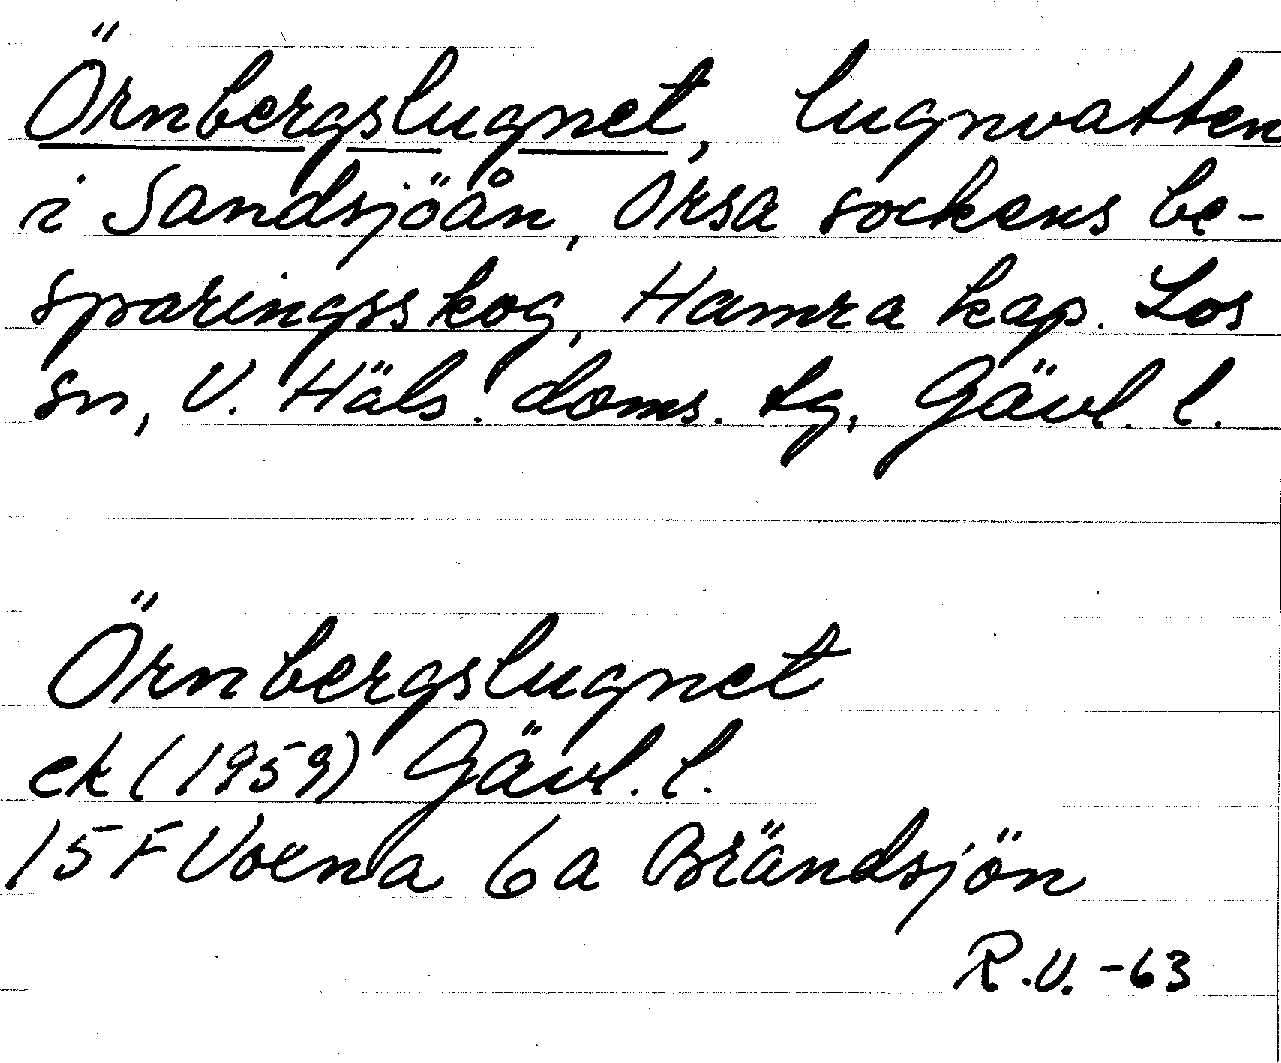 Örnbergslugnet, lugnvatten
i Sandsjöån, Orsa sockens be-
sparingsskog, Hamra kap. Los
sn, V. Häls. doms. tg, Gävl. l.
Örnbergslugnet
ek (1959) Gävl. l.
15 F Voxna 6a Brändsjön
R.V. -63